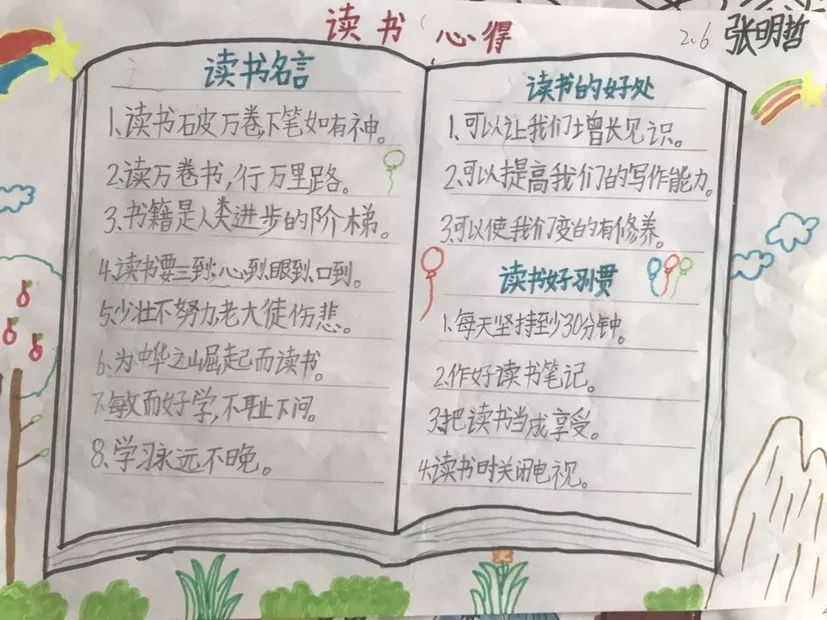 读书心得
2.6 张明哲
读书名言
1.读书破万卷,下笔如有神。
2.读万卷书,行万里路。
3.书籍是人类进步的阶梯。
4.读书要三到:心到,眼到,口到。
5.少壮不努力,老大徒伤悲。
6.为中华之崛起而读书。
7.敏而好学,不耻下问。
8.学习永远不晚。
读书的好处
1.可以让我们增长见识。
2.可以提高我们的写作能力。
3.可以使我们变的有修养。
读书好习惯
1.每天坚持至少30分钟。
2.作好读书笔记。
3.把读书当成享受。
4.读书时关闭电视。